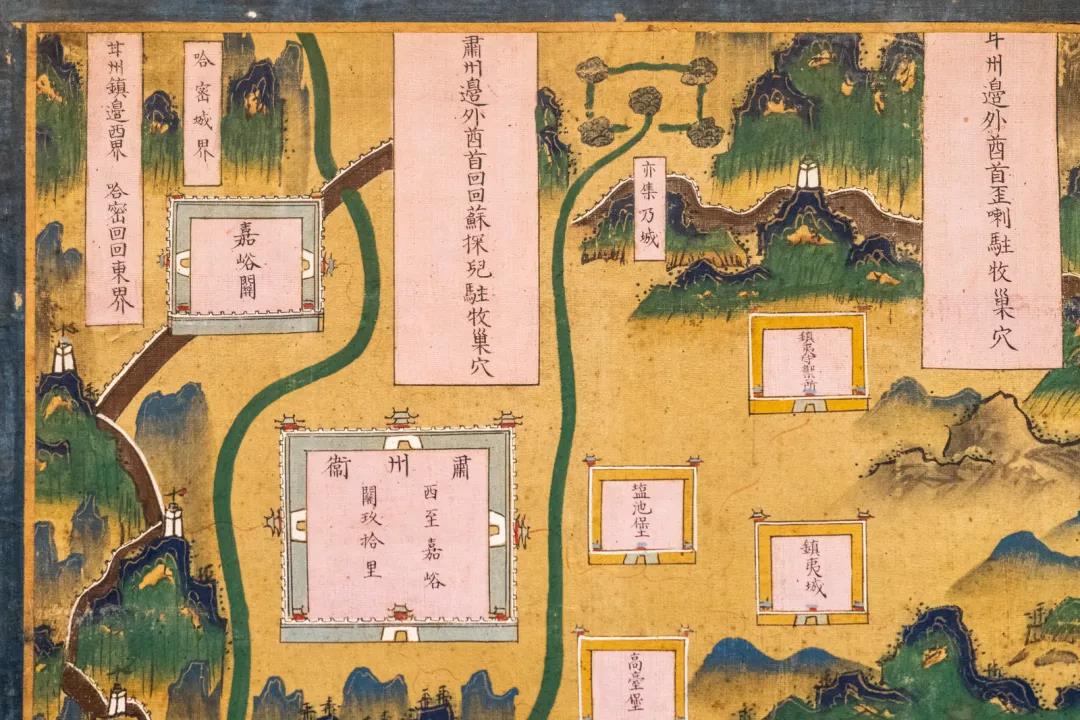 甘州邊外酋首歪喇駐牧巢穴
亦集乃城
肅州邊外酋首回回蘇探兒駐牧巢穴
哈密城界
甘州鎮邊西界 哈密回回東界
嘉峪關
鎮夷守禦所
塩池堡
鎮夷城
高臺堡
肅州衛
西至嘉峪
關玖拾里